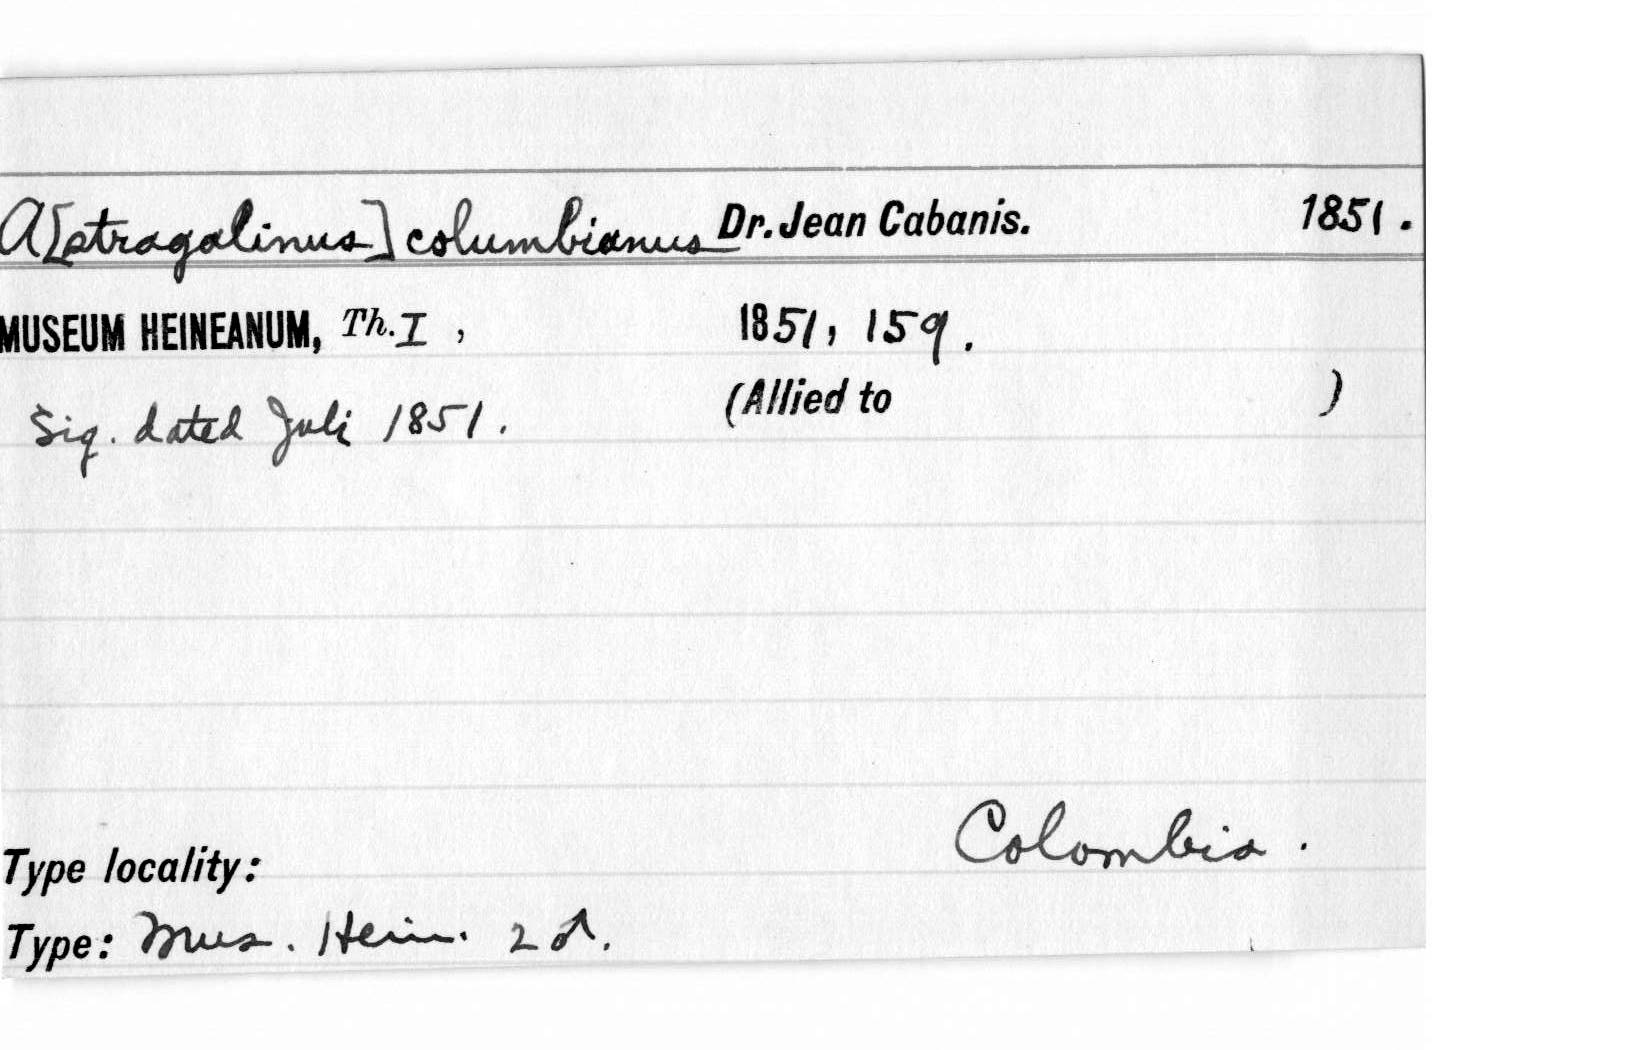 A[stragalinus] columbianus Dr. Jean Cabanis. 1851.
MUSEUM HEINEANUM, Th. I, 1851, 159.
(Allied to )
Sig. dated Juli 1851.
Colombia.
Type locality:
Type: Mus. Hein. 2 ♂.